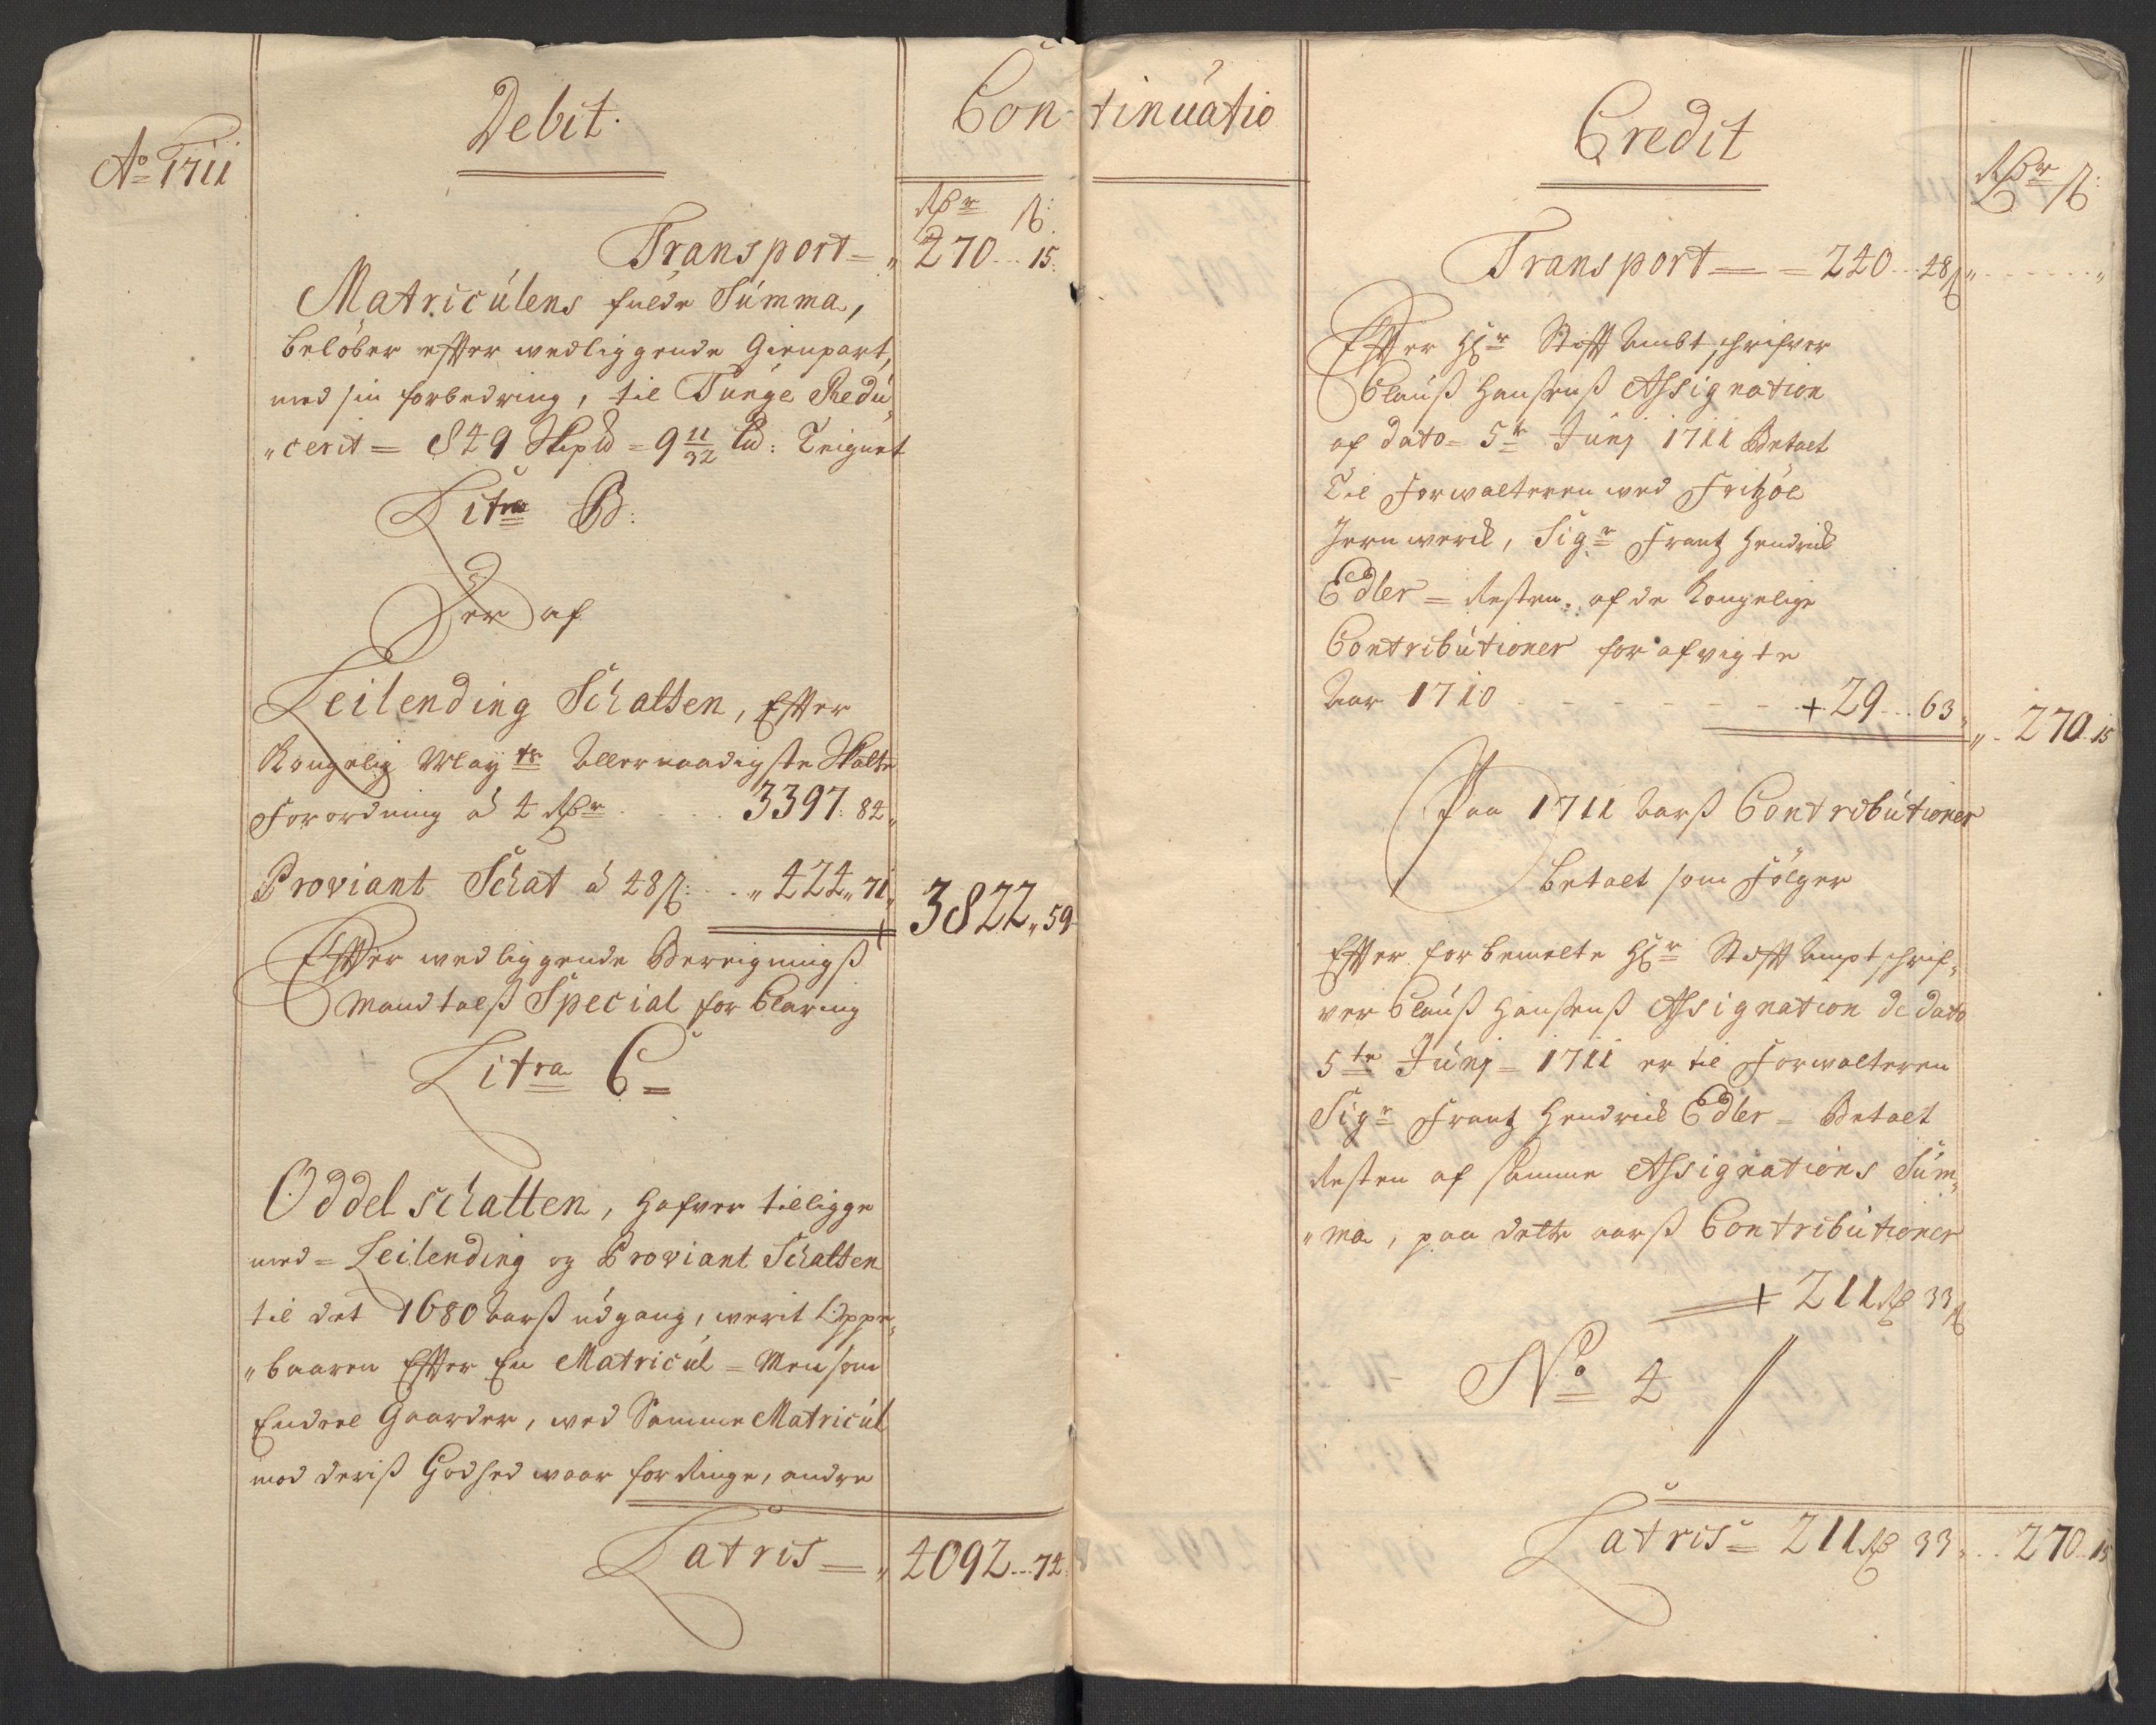 Ao 1711
Debit.
Continuatio
Rdr ß:
Transport = „ 270 .. 15:
Matriculens fulde Summa,
beløber efter wedliggende Gienpart,
med sin forbedring, til Tunge Redu„
„cerit = 849 Skipd = 9 11/32 Lid: Teignet
Litra B:
Der af
Leilending Schatten, Effter
Kongelig Mayts Allernaadigste Skatte
Forordning á 4 Rdr . . . . 3397: 84„
Proviant Schat á 48 ß: . . „ 424„ 71„
3822„ 59
Effter wedliggende Beregnings
Mandtalß Special forklaring
Litra C =
Oddel schatten, hafver tilligge
med = Leilending og Proviant Schatten
til det 1680 Aarß udgang, werit Oppe„
„baaren Effter En Matricul = Men som
Endeel Gaarder, wed Samme Matricul
mod deriß Godhed waar for Ringe, andre
Latris = „ 4092 ... 74
Credit
Rdr ß:
Transport = = 240 .. 48 ß „ . . . . . „
Effter Hr Stifft Ambtschrifver
Clauß Hanßens Assignation
af dato = 5te Junj 1711 Betalt
Til Forwalteren wed Fritzøe
Jernwerck, Sigr Frantz Hendrick
Edler = Resten, af de Kongelige
Contributioner for afvigte
Aar 1710 - - - - - - + 29 ... 63„
„ . 270 .. 15
Paa 1711 Aarß Contributioner
betalt som Følger
Effter forbemelte Hr Stifft Amptschrif„
ver Clauß Hanßens Assignation de dato
5te Junj = 1711 er til Forwalteren
Sigr Frantz Hendrick Edler = Betalt
Resten af samme Assignations Sum„
„ma, paa dette aarß Contributioner
+ 211 Rd 33 ß
No 4
Latris = 211 Rd 33 „ . . 270 .. 15